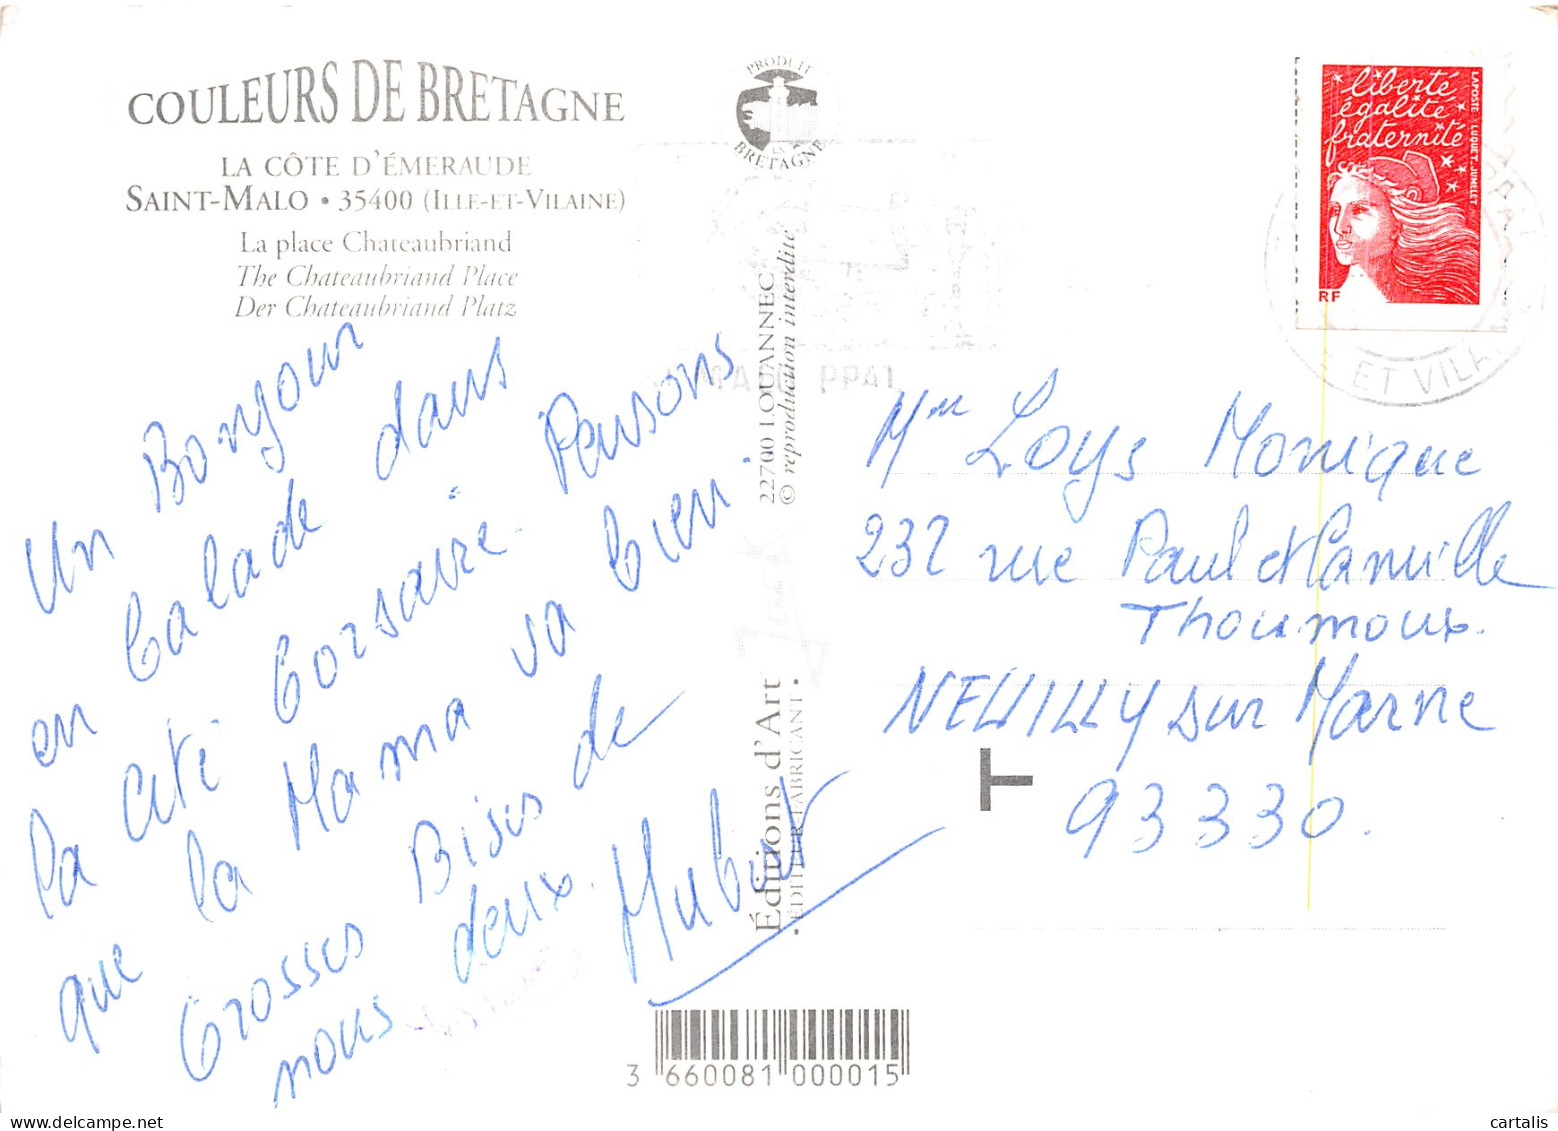 COULEURS DE BRETAGNE
LA CÔTE D'ÉMERAUDE
SAINT-MALO • 35400 (ILLE-ET-VILAINE)
La place Chateaubriand
The Chateaubriand Place
Der Chateaubriand Platz
Un Bonjour
en Balade dans
la cité Corsaire. Pensons
que la Mama va bien.
Grosses Bises de
nous deux.
Hubert
PRODUIT EN BRETAGNE
22700 LOUANNEC
© reproduction interdite
Jack
Éditions d'Art
• ÉDITEUR-FABRICANT •
liberté
égalité
fraternité
LA POSTE LUQUET-JUMELET
RF
ET VILA
PPAL
Mme Loys Monique
232 rue Paul et Camille
Thoumoux.
NEUILLY sur Marne
93330.
T
3 660081 000015
cartalis